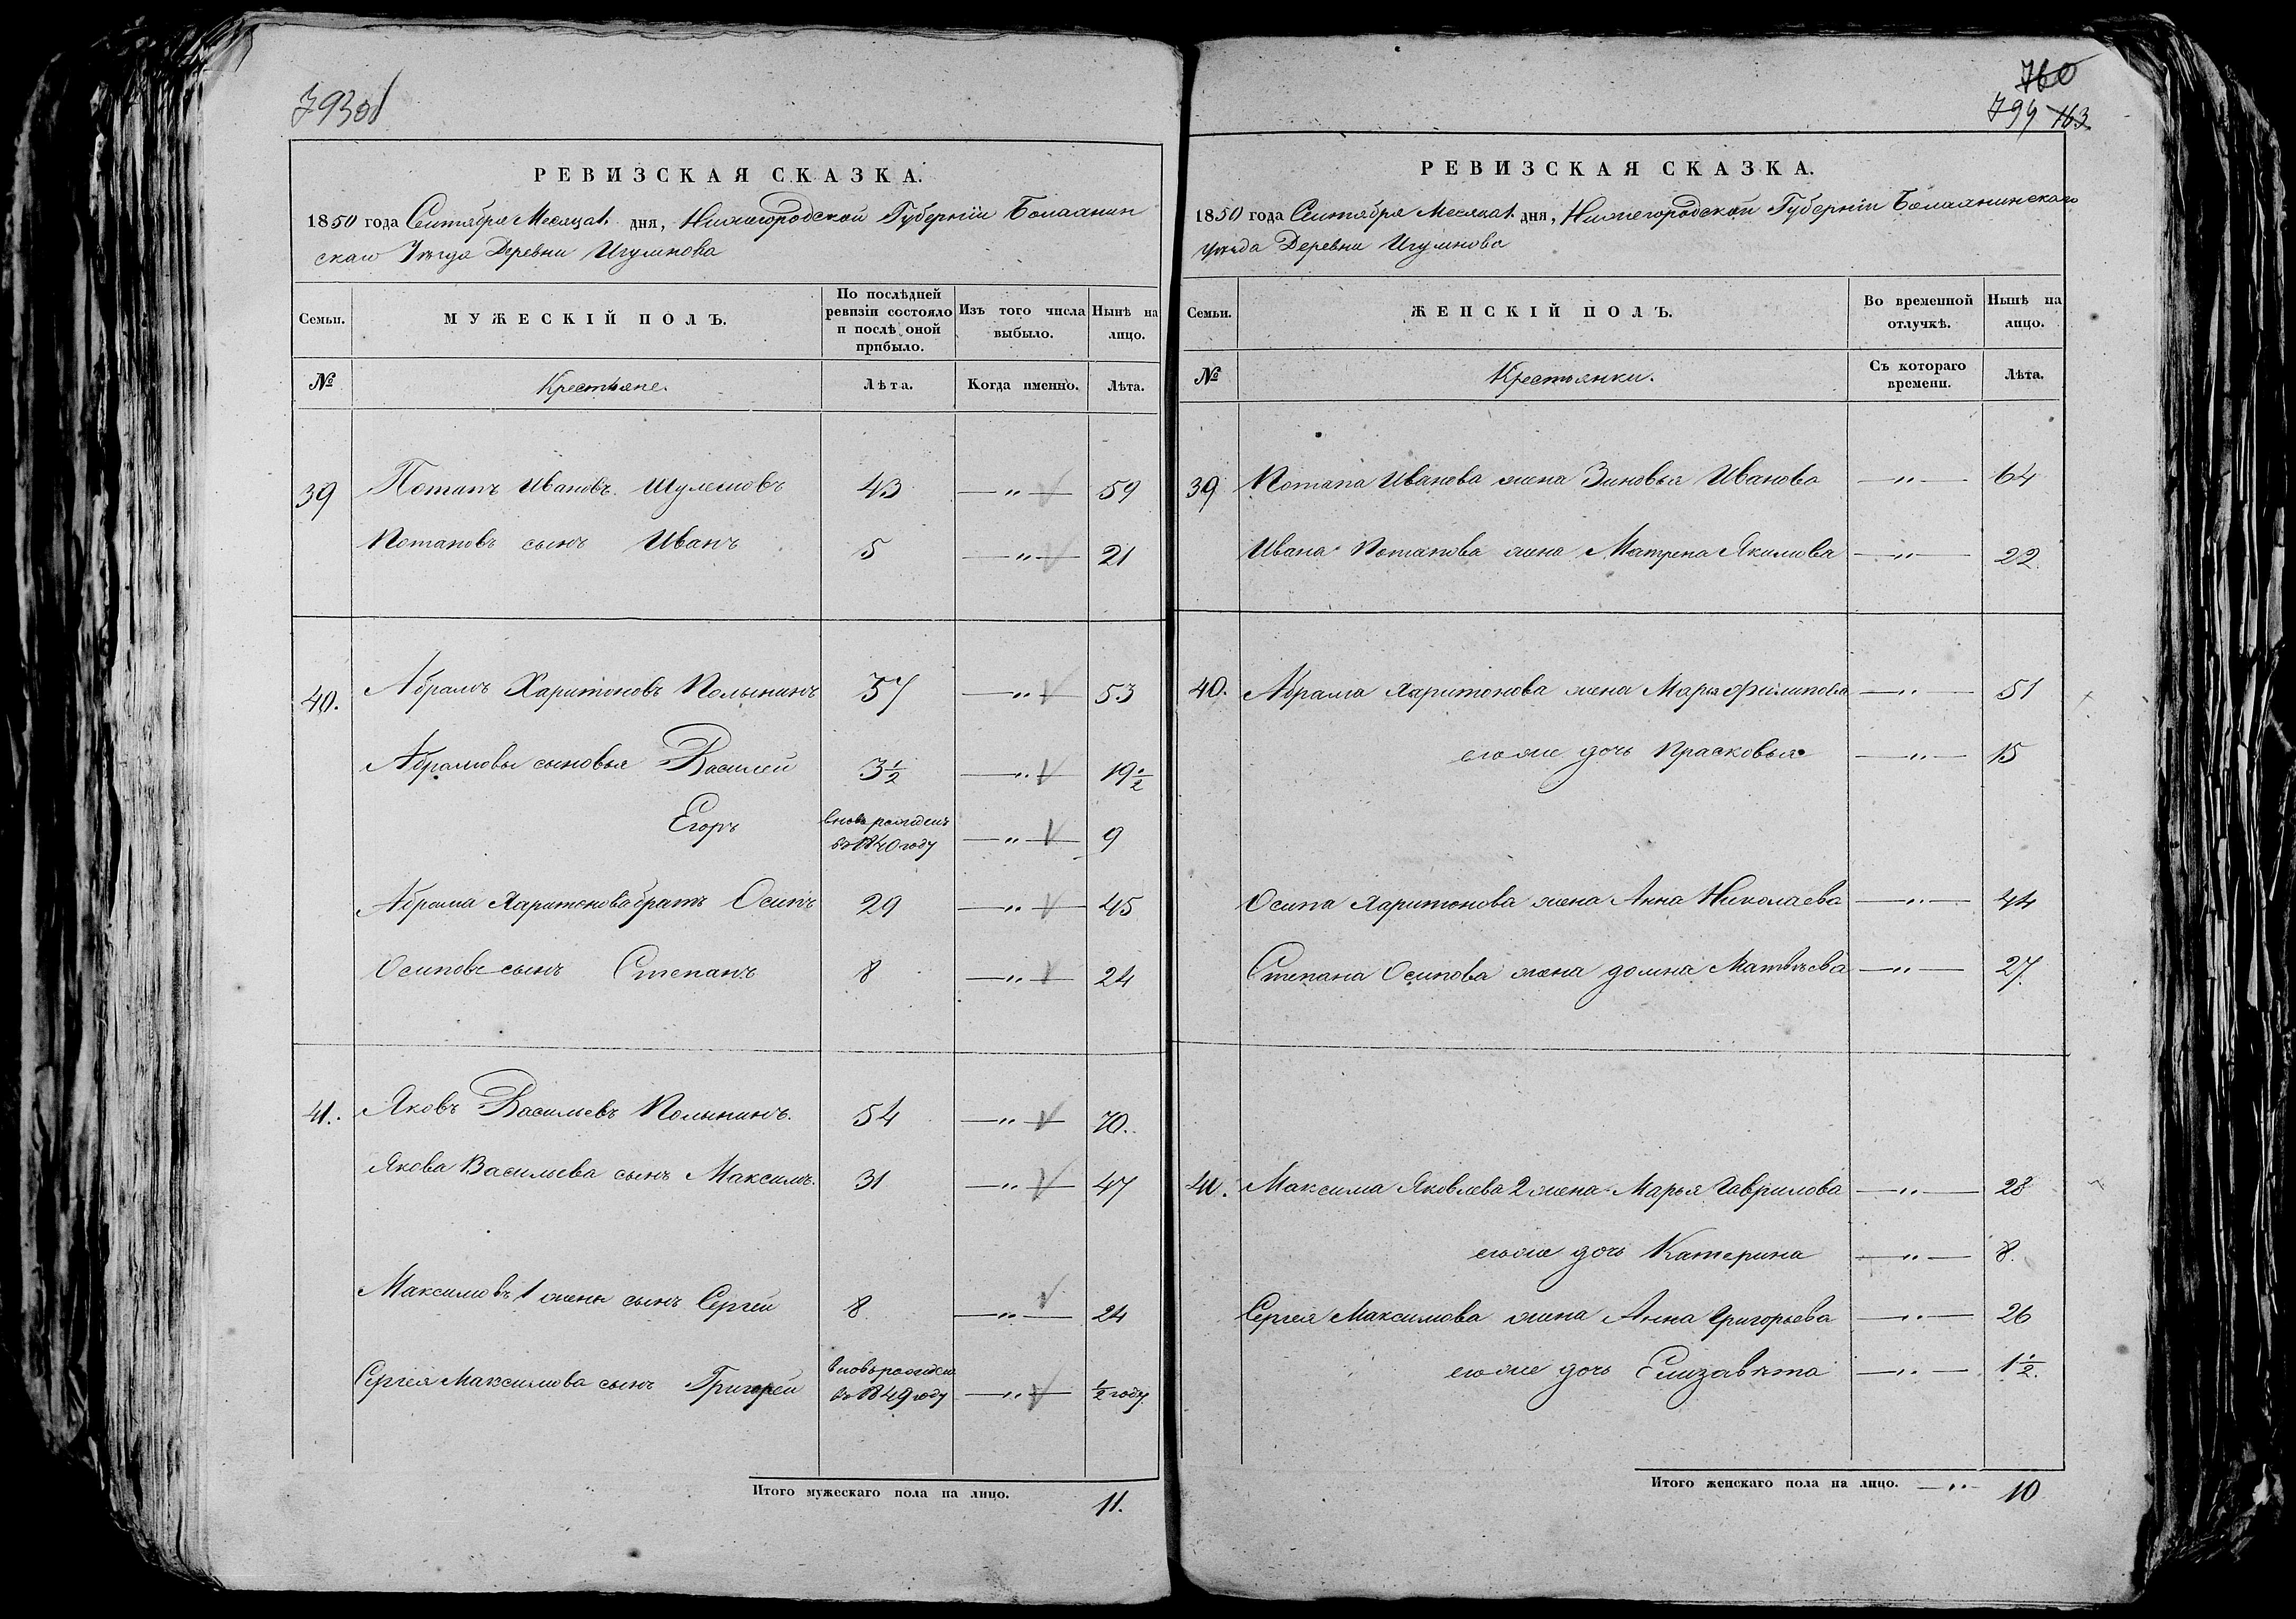 793об
РЕВИЗСКАЯ СКАЗКА.
1850 года Сентября Месяца 1 дня, Нижегородской Губерніи Балахнин
скаго Уѣзда Деревни Игумнова
Семьи.
МУЖЕСКІЙ ПОЛЪ.
По послѣдней ревизіи состояло и послѣ оной прибыло.
Изъ того числа выбыло.
Нынѣ на лицо.
№
Крестьяне.
Лѣта.
Когда именно.
Лѣта.
39 Потапъ Ивановъ Шулемовъ 43 — „ — 59
Потаповъ сынъ Иванъ 5 — „ — 21
40. Абрамъ Харитоновъ Полынинъ 37 — „ — 53
Абрамовы сыновья Василей 3 1/2 — „ — 19 1/2
Егоръ вновь рожденъ въ 1840 году — „ — 9
Абрама Харитонова братъ Осипъ 29 — „ — 45
Осиповъ сынъ Степанъ 8 — „ — 24
41. Яковъ Васильевъ Полынинъ. 54 — „ — 70.
Якова Васильева сынъ Максимъ. 31 — „ — 47
Максимовъ 1 жены сынъ Сергей 8 — „ — 24
Сергея Максимова сынъ Григорей вновь рожден въ 1849 году — „ — 1/2 году
Итого мужескаго пола на лицо. 11.
760
794 163
РЕВИЗСКАЯ СКАЗКА.
1850 года Сентября Месяца 1 дня, Нижегородской Губерніи Балахнинскаго
уѣзда Деревни Игумнова
Семьи.
ЖЕНСКІЙ ПОЛЪ.
Во временной отлучкѣ.
Нынѣ на лицо.
№
Крестьянки.
Съ котораго времени.
Лѣта.
39 Потапа Иванова жена Зиновья Иванова — „ — 64
Ивана Потапова жена Матрена Якимова — „ — 22
40. Абрама Харитонова жена Марья Филипова — „ — 51
его же дочь Прасковья — „ — 15
Осипа Харитонова жена Анна Николаева — „ — 44
Степана Осипова жена домна Матвѣева — „ — 27.
41. Максима Яковлева 2 жена Марья Гаврилова — „ — 28
его же дочь Катерина — „ — 8.
Сергея Максимова жена Анна Григорьева — „ — 26
его же дочь Елизавѣта — „ — 1 1/2.
Итого женскаго пола на лицо. — „ — 10